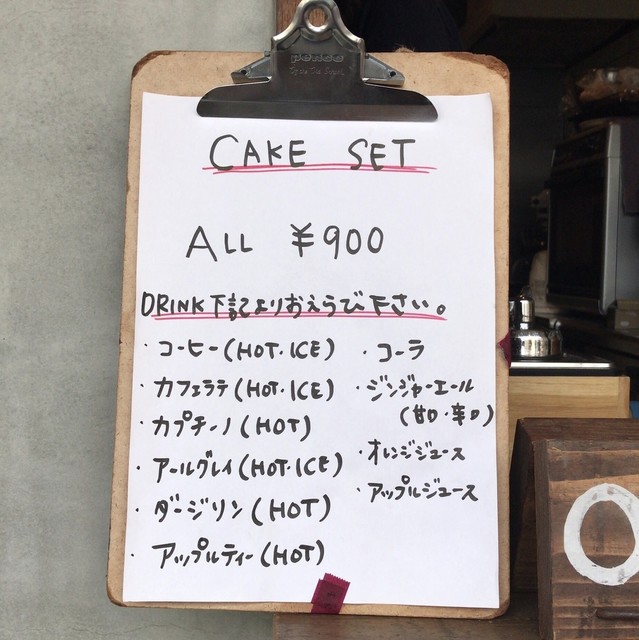 CAKE SET
ALL ¥900
DRINK下記よりおえらび下さい。
・コーヒー(HOT・ICE)
・カフェラテ(HOT・ICE)
・カプチーノ(HOT)
・アールグレイ(HOT・ICE)
・ダージリン(HOT)
・アップルティー(HOT)
・コーラ
・ジンジャーエール
(甘口・辛口)
・オレンジジュース
・アップルジュース
O